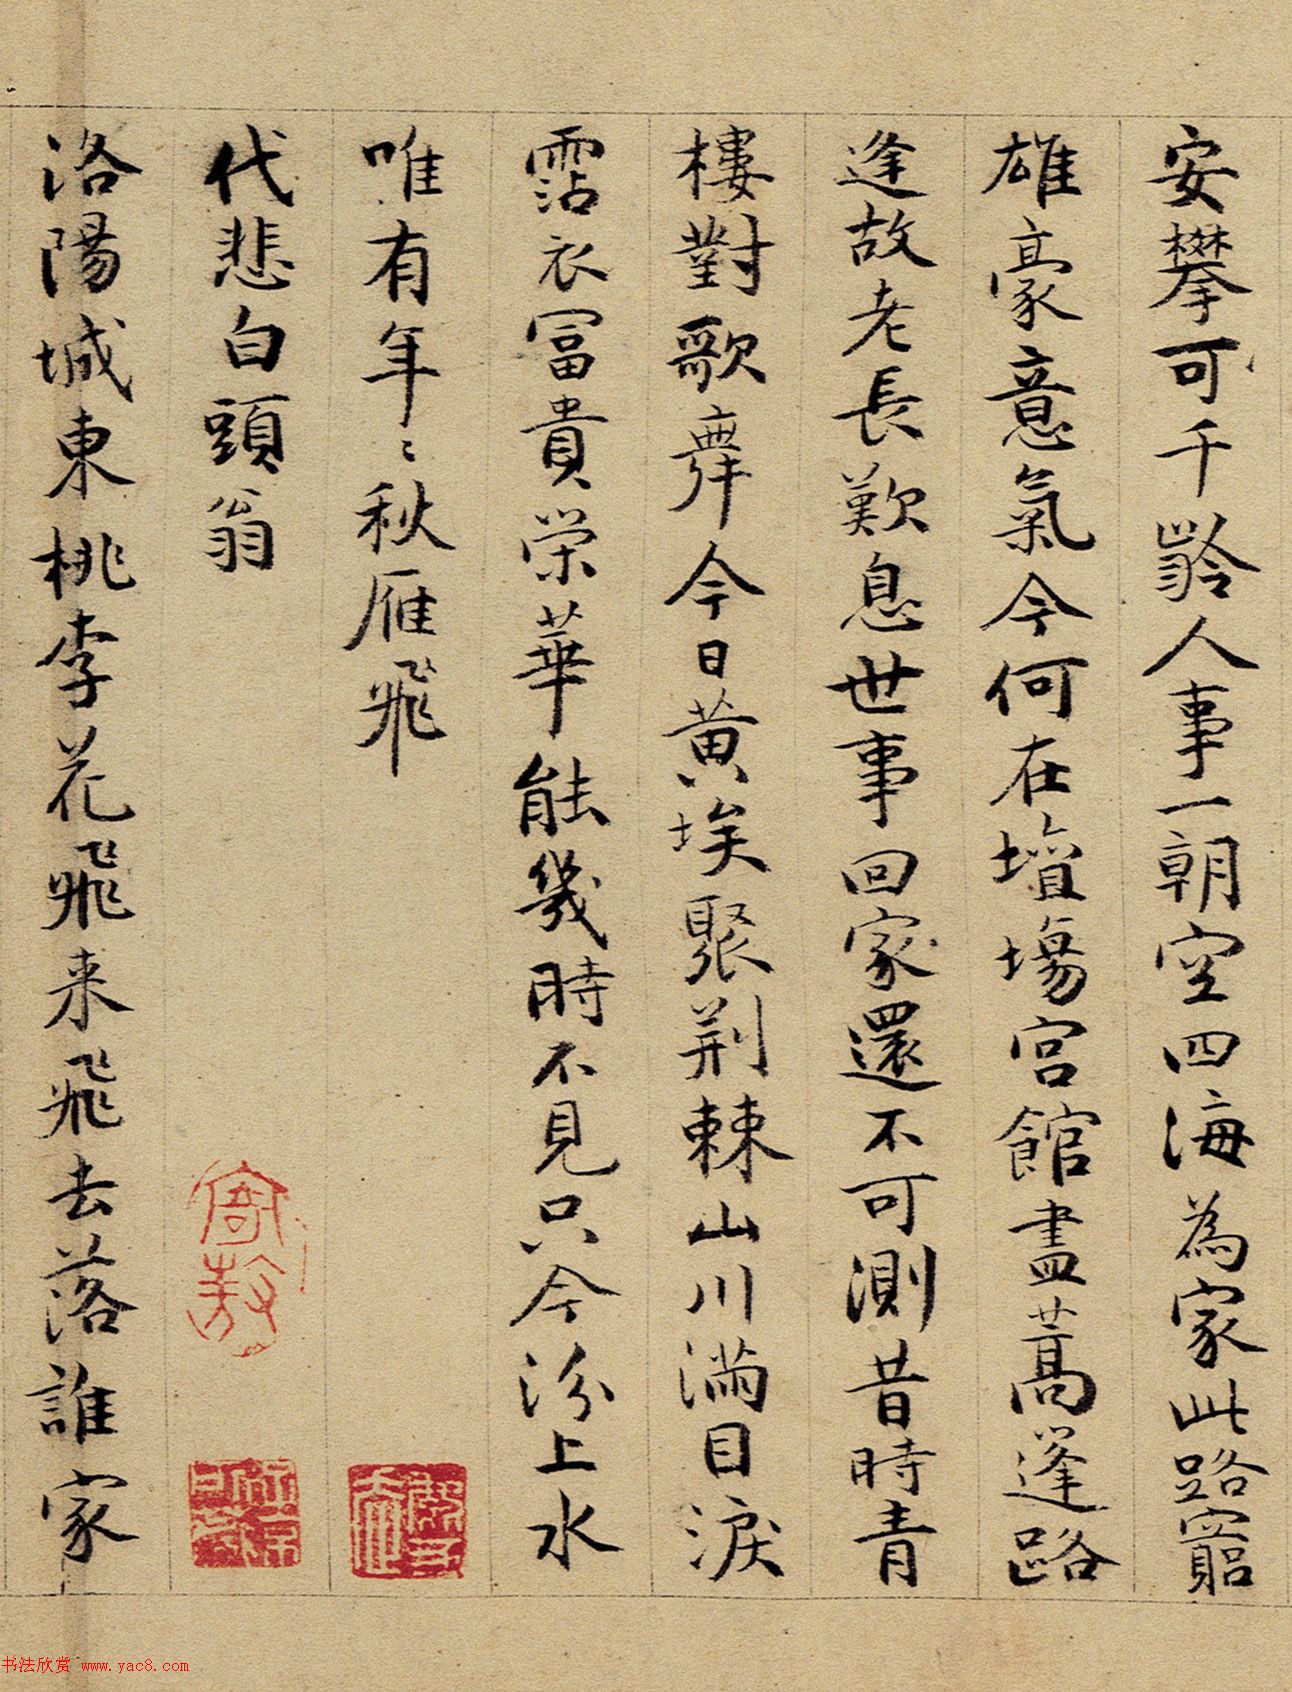 安攀可千齡人事一朝空四海為家此路窮
雄豪意氣今何在壇場宮館盡蒿蓬路
逢故老長歎息世事回家還不可測昔時青
樓對歌舞今日黃埃聚荆棘山川滿目淚
霑衣冨貴榮華能幾時不見只今汾上水
唯有年〻秋雁飛
代悲白頭翁
洛陽城東桃李花飛來飛去落誰家
书法欣赏 www.yac8.com